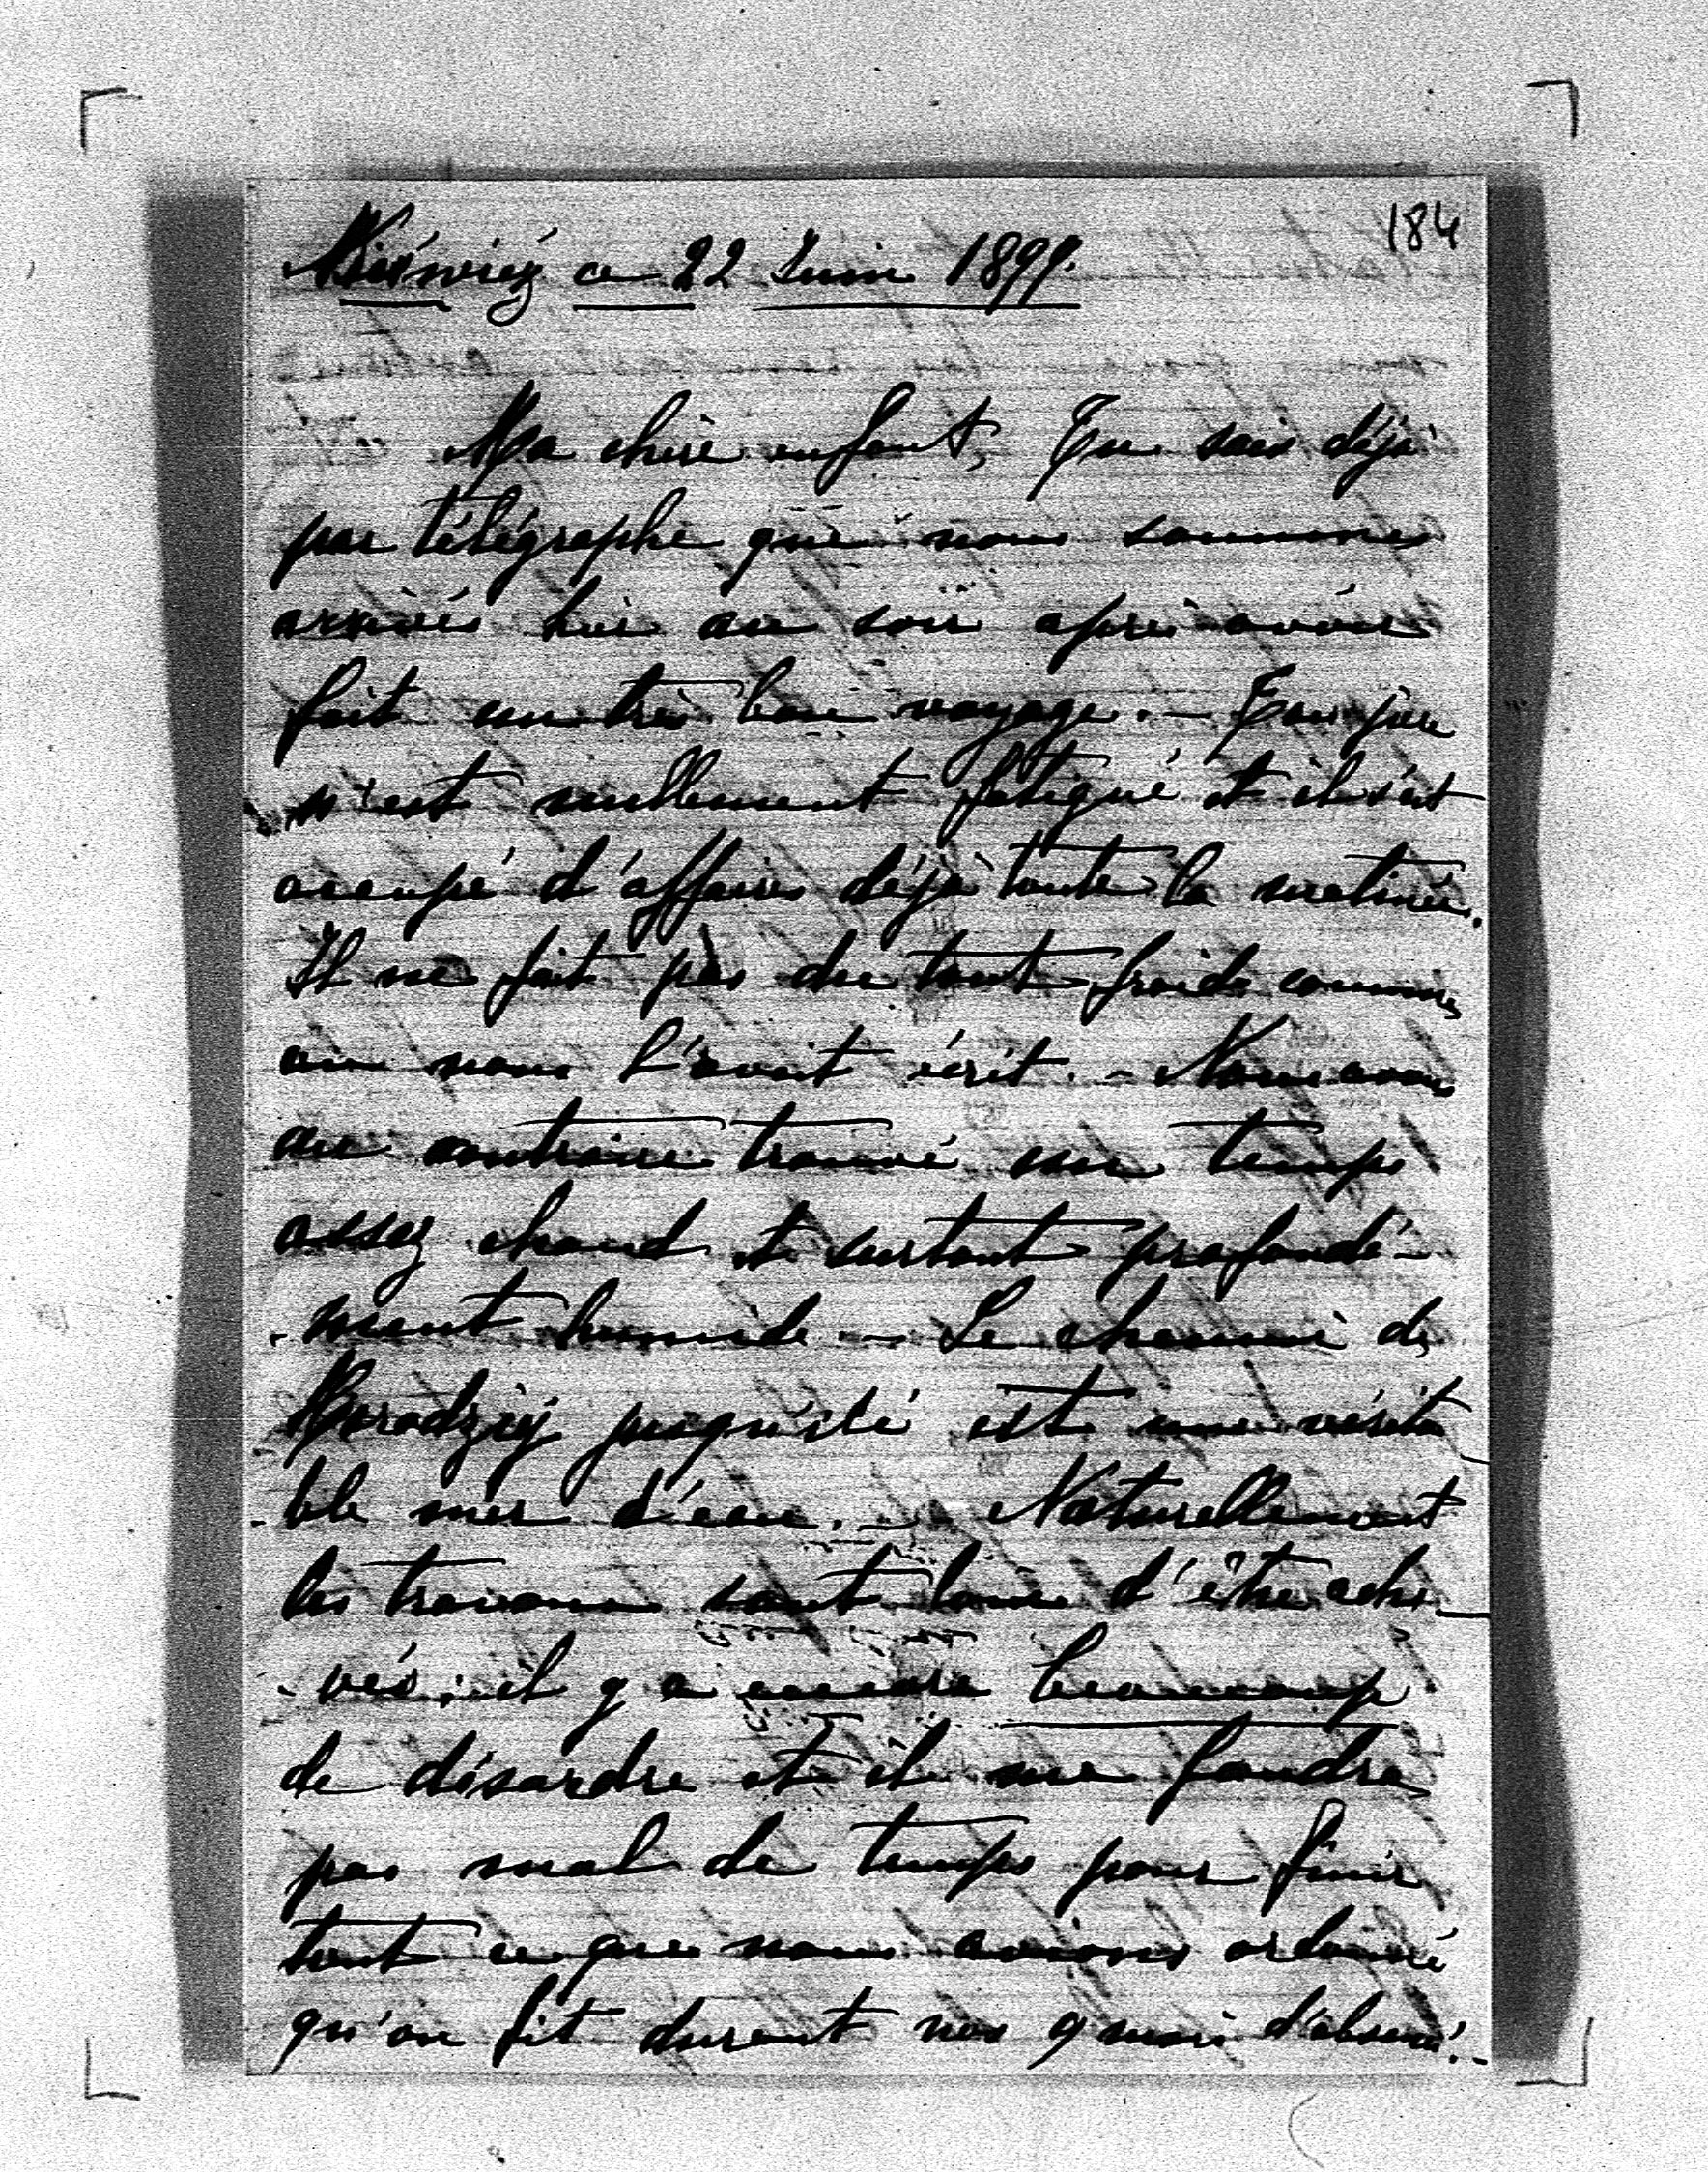 184
Nieśwież ce 22 Juin 1899.
Ma chère enfant, Tu sais déjà
par télégraphe que nous sommes
arrivés hier au soir après avoir
fait un très bon voyage. – Ton père
n'est nullement fatigué et il s'est
occupé d'affaires déjà toute la matinée.
Il ne fait pas du tout froid comme
on nous l'avait écrit. – Nous avons
au contraire trouvé un temps
assez chaud et surtout profondé-
-ment humide – Le chemin de
Horodziej jusqu'ici est une vérita
-ble mer d'eau. – Naturellement
les travaux sont loin d'être ache-
-vés; il y a encore beaucoup
de désordre et il me faudra
pas mal de temps pour finir
tout ce que nous avions ordonné
qu'on fit durant nos 9 mois d'absence. –